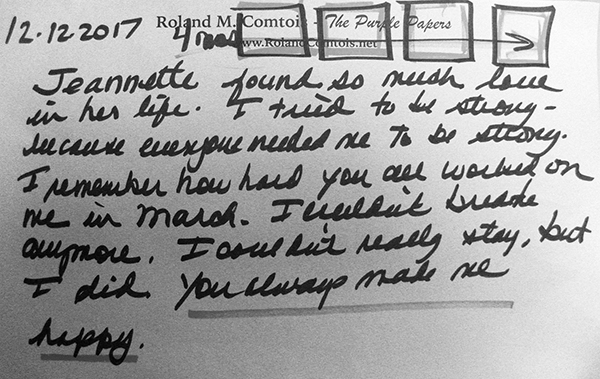 Roland M. Comtois - The Purple Papers
12.12.2017 4 mos
www.RolandComtois.net
Jeannette found so much love
in her life. I tried to be strong -
because everyone needed me to be strong.
I remember how hard you all worked on
me in March. I couldn't breathe
anymore. I couldn't really stay, but
I did. You always made me
happy.